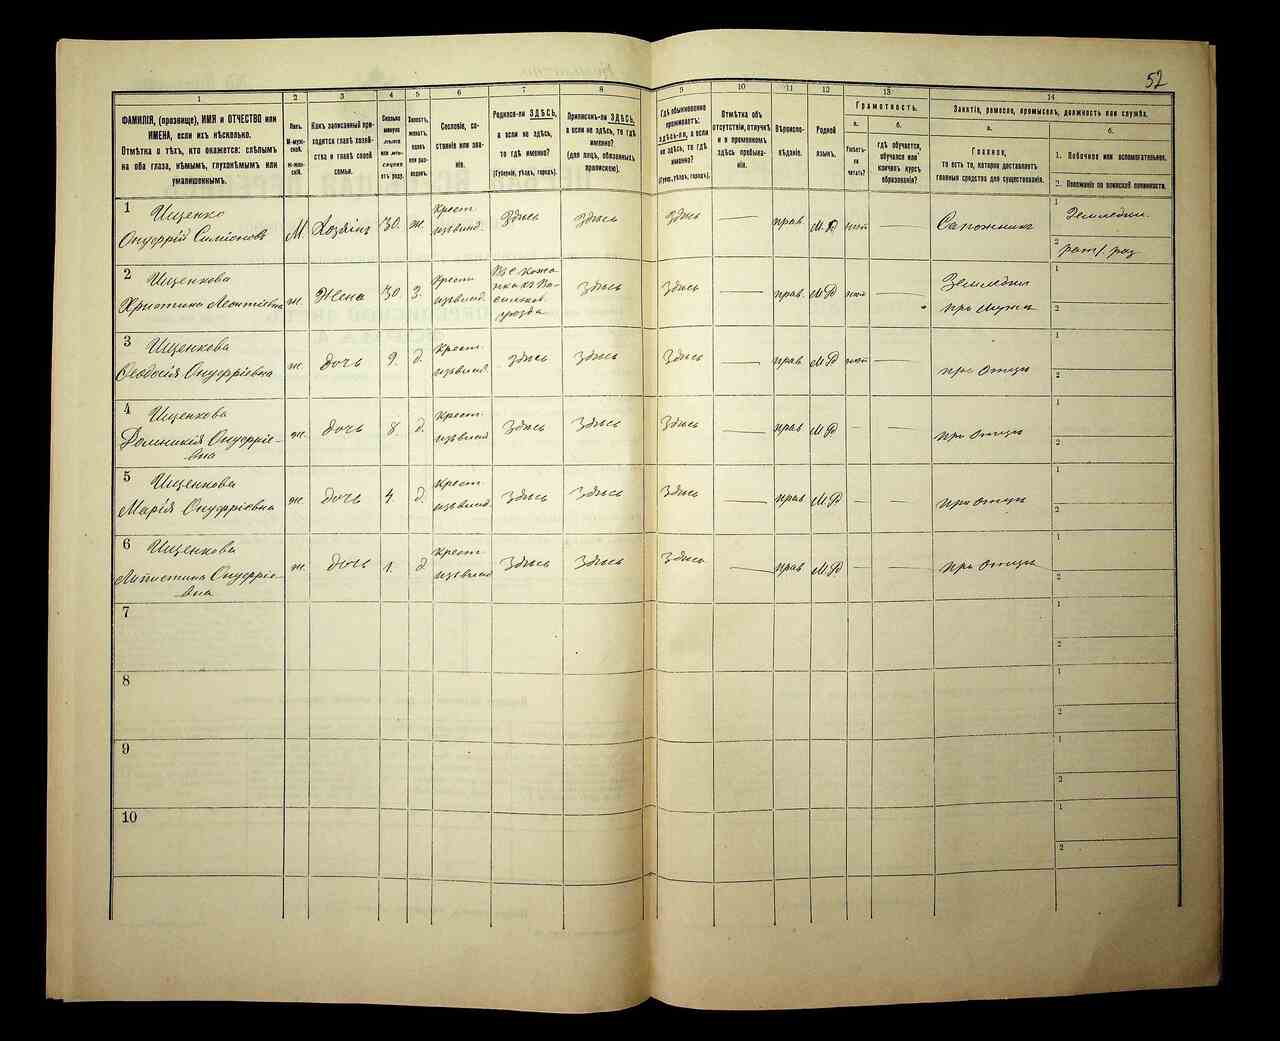 52
1
2
3
4
5
6
7
8
9
10
11
12
13
14
ФАМИЛІЯ, (прозвище), ИМЯ и ОТЧЕСТВО или
ИМЕНА, если ихъ нѣсколько.
Отмѣтка о тѣхъ, кто окажется: слѣпымъ
на оба глаза, нѣмымъ, глухонѣмымъ или
умалишеннымъ.
Полъ.
М-муж-
ской.
Ж-жен-
скій.
Какъ записанный при-
ходится главѣ хозяй-
ства и главѣ своей
семьи.
Сколько
минуло
лѣтъ
или мѣ-
сяцевъ
отъ роду.
Холостъ,
женатъ,
вдовъ
или раз-
веденъ.
Сословіе, со-
стояніе или зва-
ніе.
Родился-ли ЗДѢСЬ,
а если не здѣсь,
то гдѣ именно?
(Губернія, уѣздъ, городъ).
Приписанъ-ли ЗДѢСЬ,
а если не здѣсь, то гдѣ
именно?
(для лицъ, обязанныхъ
припискою).
Гдѣ обыкновенно
проживаетъ:
здѣсь-ли, а если
не здѣсь, то гдѣ
именно?
(Губер., уѣздъ, городъ).
Отмѣтка объ
отсутствіи, отлучкѣ
и о временномъ
здѣсь пребыва-
ніи.
Вѣроиспо-
вѣданіе.
Родной
языкъ.
Грамотность.
а.
Умѣетъ-
ли
читать?
б.
гдѣ обучается,
обучался или
кончилъ курсъ
образованія?
Занятіе, ремесло, промыселъ, должность или служба.
а.
Главное,
то есть то, которое доставляетъ
главныя средства для существованія.
б.
1. Побочное или вспомогательное.
2. Положеніе по воинской повинности.
1 Ищенко
Онуфрій Симіоновъ М. Хозяинъ 30. ж. Крест. Здѣсь Здѣсь здѣсь прав М.Р нѣт Сапожникъ
1 Земледѣл.
2
2 Ищенкова
Христина Леонтіевна ж. Жена 30 З. Крест. Здѣсь Здѣсь прав. М.Р нѣт Земледѣл
при мужѣ
1
2
3 Ищенкова
Ѳеодосія Онуфріевна ж. дочь 9. д. Крест. здѣсь Здѣсь Здѣсь прав М.Р нѣт при отцѣ
1
2
4 Ищенкова
Домникія Онуфріе-
вна ж. дочь 8. д. Крест. Здѣсь Здѣсь Здѣсь прав М.Р при отцѣ
1
2
5 Ищенкова
Марія Онуфріевна ж. дочь 4. д. Крест. Здѣсь Здѣсь Здѣсь прав М.Р при отцѣ
1
2
6 Ищенкова
Онуфріе-
вна ж. дочь 1. д Крест. Здѣсь Здѣсь Здѣсь прав М.Р при отцѣ
1
2
7
1
2
8
1
2
9
1
2
10
1
2